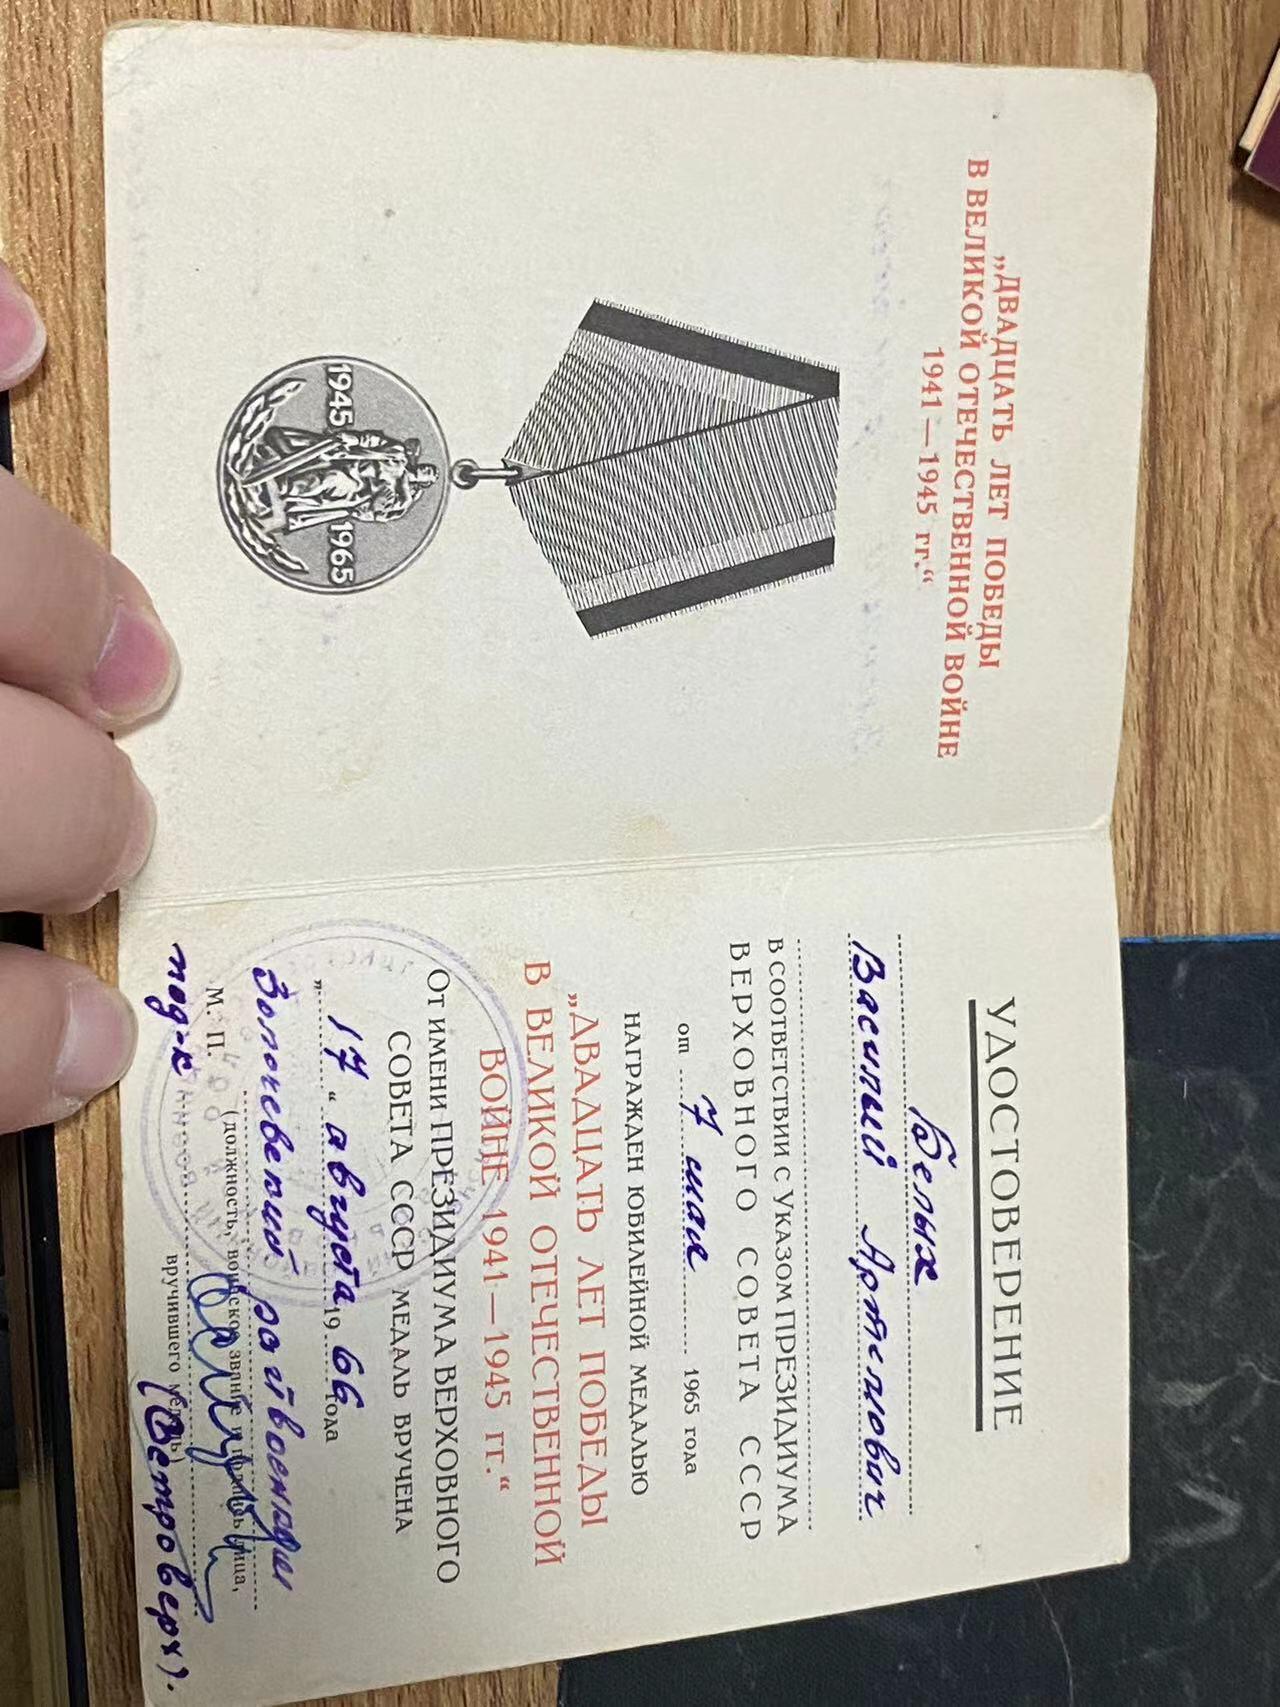 „ДВАДЦАТЬ ЛЕТ ПОБЕДЫ
В ВЕЛИКОЙ ОТЕЧЕСТВЕННОЙ ВОЙНЕ
1941—1945 гг.“
1945 1965
УДОСТОВЕРЕНИЕ
Белых
Василий Артемович
В СООТВЕТСТВИИ С УКАЗОМ ПРЕЗИДИУМА
ВЕРХОВНОГО СОВЕТА СССР
от 7 мая 1965 года
НАГРАЖДЕН ЮБИЛЕЙНОЙ МЕДАЛЬЮ
„ДВАДЦАТЬ ЛЕТ ПОБЕДЫ
В ВЕЛИКОЙ ОТЕЧЕСТВЕННОЙ
ВОЙНЕ 1941—1945 гг.“
ОТ ИМЕНИ ПРЕЗИДИУМА ВЕРХОВНОГО
СОВЕТА СССР МЕДАЛЬ ВРУЧЕНА
„17“ августа 1966 года
Золочевский райвоенком
М. П. (должность, воинское звание и подпись лица,
вручившего медаль)
под-к (Ветроверх).